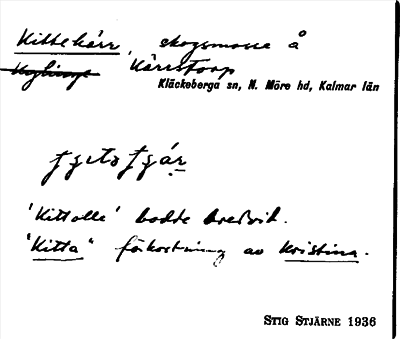 Kittekärr, skogsmosse å
Kärrstorp
Kläckeberga sn, N. Möre hd, Kalmar län
'Kittolle' bodde bredvid.
"Kitta" förkortning av Kristina.
STIG STJÄRNE 1936